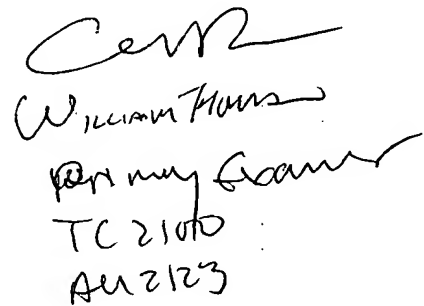 William Thomson
Primary Examiner
TC 2100
AU 2123